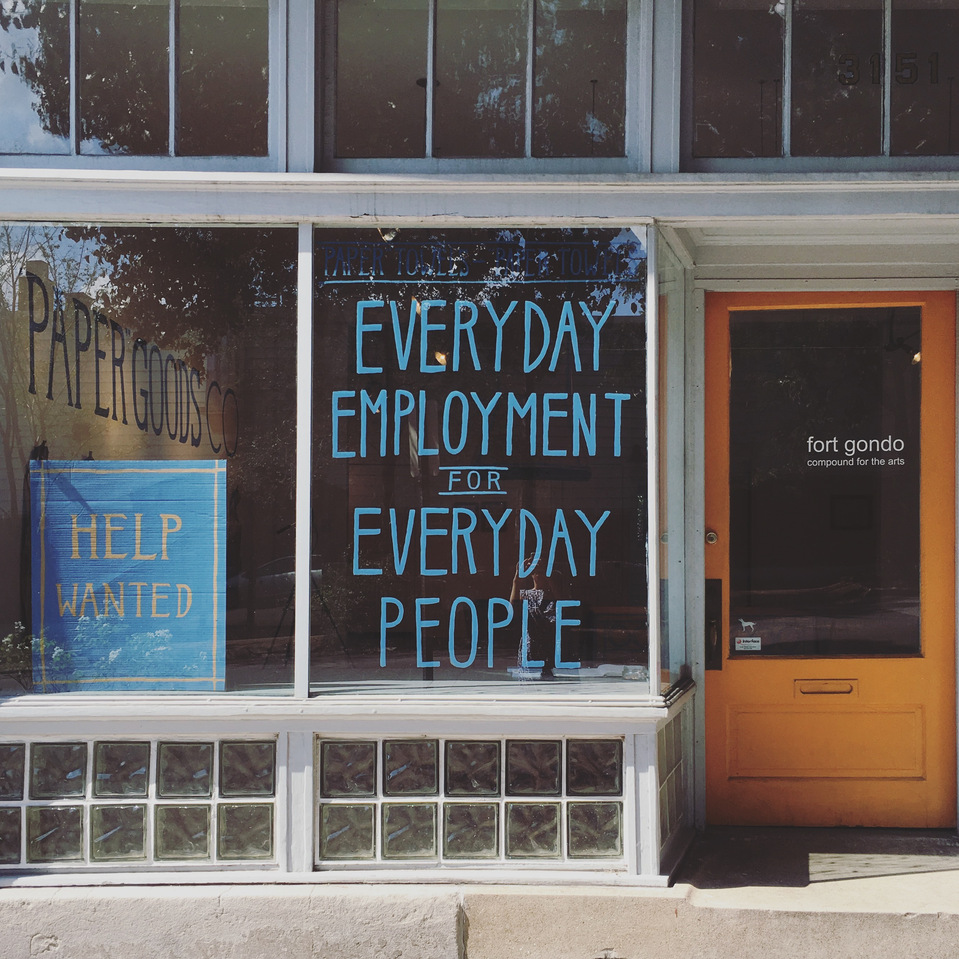 3151
PAPER GOODS CO
HELP
WANTED
PAPER TOWELS
EVERYDAY
EMPLOYMENT
FOR
EVERYDAY
PEOPLE
fort gondo
compound for the arts